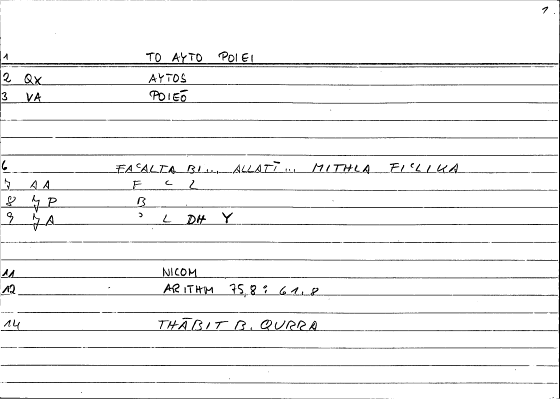 1.
1 TO AYTO POIEI
2 QX AYTOS
3 VA POIEŌ
6 FAʿALTA BI... ALLATĪ... MITHLA FIʿLIKA
7 AA F ʿ L
8 P B
9 A ʾ L DH Y
11 NICOM
12 ARITHM 75,8 : 61,8
14 THĀBIT B. QURRA